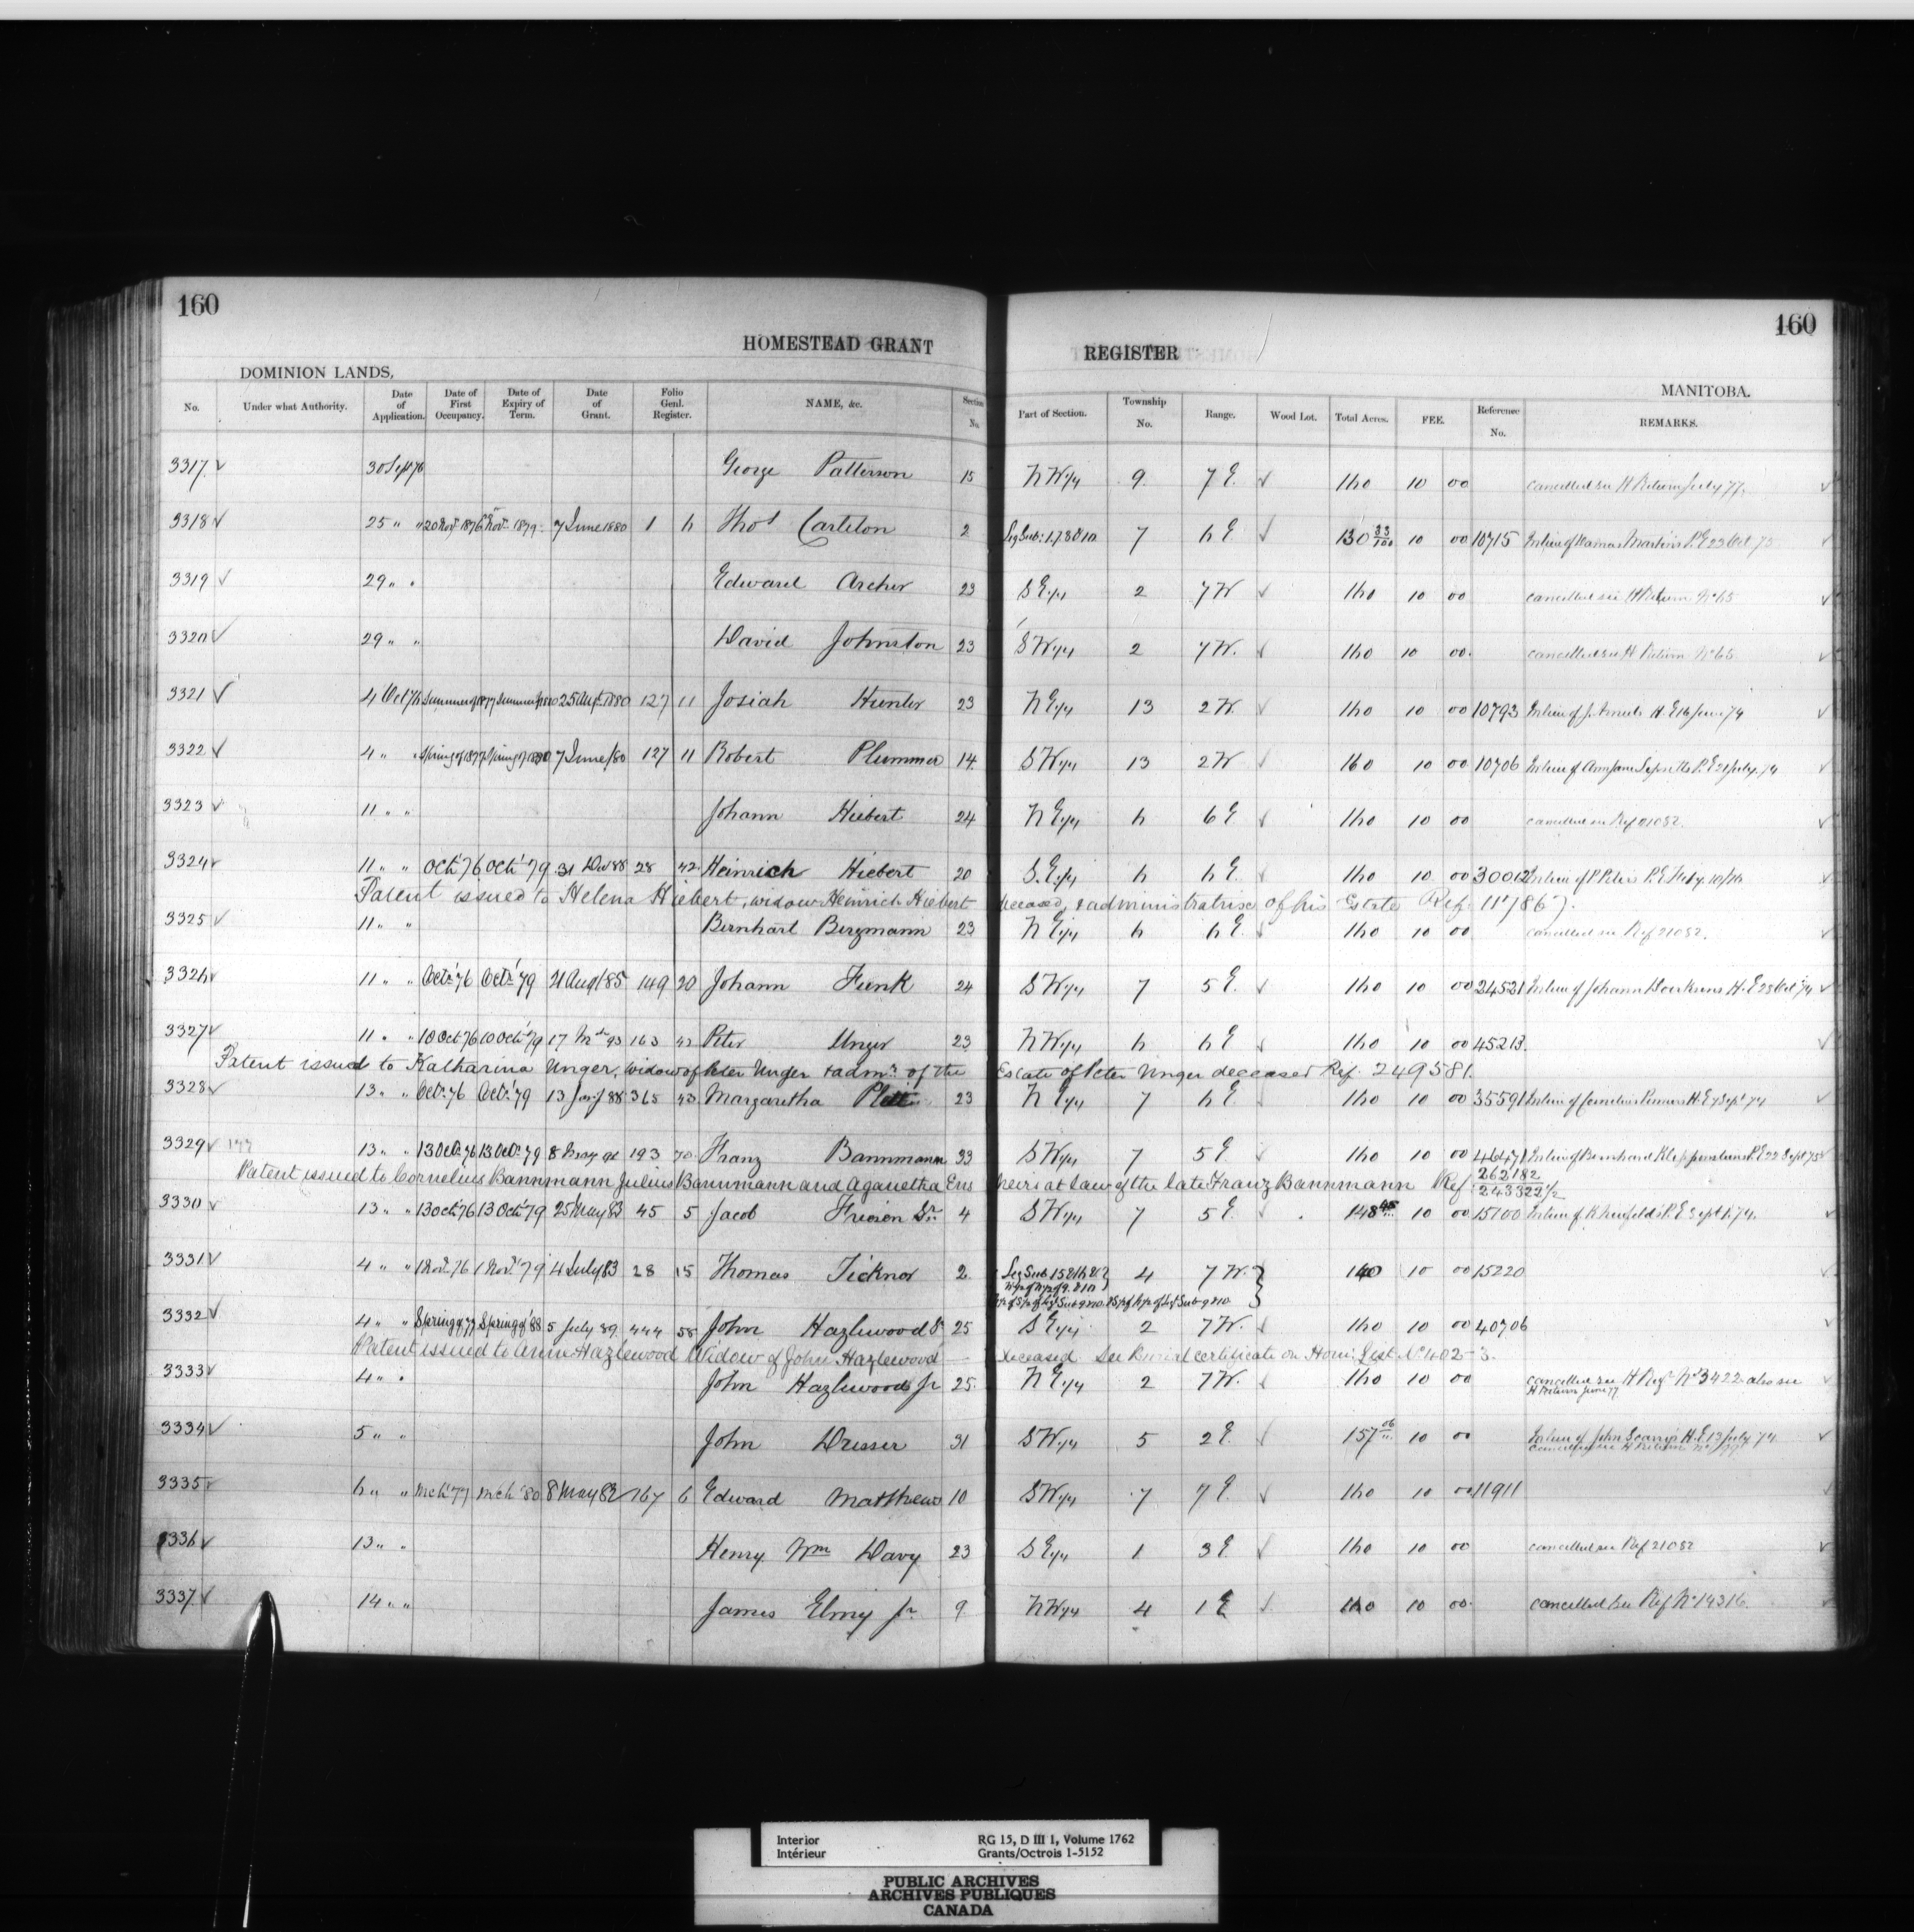 160
160
HOMESTEAD GRANT REGISTER
DOMINION LANDS,
MANITOBA.
No. Under what Authority. Date of Application. Date of First Occupancy. Date of Expiry of Term. Date of Grant. Folio Genl. Register. NAME, &c. Section No. Part of Section. Township No. Range. Wood Lot. Total Acres. FEE. Reference No. REMARKS.
3317 ✓ 30 Sept 76 George Patterson 15 N W 1/4 9 7 E. ✓ 160 10 00 cancelled see H Return July 77.
3318 ✓ 25 " " 20 Nov. 1876 Nov. 1879 7 June 1880 1 6 Thos Carleton 2 Leg Sub: 1,7 8 & 10 7 6 E ✓ 130 33/100 10 00 10715 In lieu of Damas Martin's P.E 23 Oct 75
3319 ✓ 29 " " Edward Archer 23 S E 1/4 2 7 W ✓ 160 10 00 cancelled see H Return No 65
3320 ✓ 29 " " David Johnston 23 S W 1/4 2 7 W. ✓ 160 10 00. cancelled see H Return No 65
3321 ✓ 4 Oct 76 Summer of 1877 Summer of 1880 25 Augt. 1880 127 11 Josiah Hunter 23 N E 1/4 13 2 W. ✓ 160 10 00 10793 In lieu of J. H. E 16 June 74
3322 ✓ 4 " " Spring of 1877 Spring of 1880 7 June /80 127 11 Robert Plummer 14 S W 1/4 13 2 W ✓ 160 10 00 10706 In lieu of Ann Jane P. E 21 July 74
3323 ✓ 11 " " Johann Hiebert 24 N E 1/4 6 6 E ✓ 160 10 00 cancelled see Ref 21082.
3324 ✓ 11 " " Oct' 76 Oct' 79 31 Dec 88 28 42 Heinrich Hiebert 20 S. E. 1/4 6 6 E ✓ 160 10 00 30012 In lieu of P Peters P. E
Patent issued to Helena Hiebert, widow Heinrich Hiebert deceased, & administratrix of his Estate Ref: 117867.
3325 ✓ 11 " " Bernhart Bergmann 23 N E 1/4 6 6 E. ✓ 160 10 00 cancelled see Ref 21082.
3326 ✓ 11 " " Octr 76 Octr 79 21 Aug /85 149 20 Johann Funk 24 S W 1/4 7 5 E ✓ 160 10 00 24521 In lieu of Johann H. E 23 Oct 74 ✓
3327 ✓ 11 " " 10 Oct 76 10 Oct' 79 17 Mch 93 163 42 Peter Unger 23 N W 1/4 6 6 E ✓ 160 10 00 45213.
Patent issued to Katharina Unger, widow of Peter Unger & admx of the Estate of Peter Unger deceased Ref. 249581.
3328 ✓ 13 " " Octr 76 Octr 79 13 Jany 88 365 43 Margaretha Plett 23 N E 1/4 7 6 E ✓ 160 10 00 35591 In lieu of Cornelius H. E 7 Sept 74
3329 ✓ 13 " " 13 Octr 76 13 Octr 79 8 193 70 Franz Bannmann 33 S W 1/4 7 5 E ✓ 160 10 00 46471 In lieu of Bernhard P. E 22 Sept 75
Patent issued to Cornelius Bannmann Julius Bannmann and Aganetha Ens heirs at law of the late Franz Bannmann Ref: 262182 / 243322 1/2
3330 ✓ 13 " " 13 Oct 76 13 Oct' 79 25 May 83 45 5 Jacob Friesen Sr. 4 S W 1/4 7 5 E. ✓ 148 10 00 15100 In lieu of P. E Sept 1. 74.
3331 ✓ 4 " " 1 Nov. 76 1 Nov. 79 4 July 83 28 15 Thomas Ticknor 2. Leg Sub 15 & 16 & 4 7 W. 160 10 00 15220
W 1/2 of N 1/2 of 9. & 10
3332 ✓ 4 " " Spring of 77 Spring of '88 5 July 89 444 58 John Hazlewood Sr 25 S E 1/4 2 7 W. ✓ 160 10 00 40706
Patent issued to Anne Hazlewood Widow of John Hazlewood deceased. See Burial certificate on Hom: List No 402-3.
3333 ✓ 4 " " John Hazlewood Jr 25. N E 1/4 2 7 W. ✓ 160 10 00 cancelled see H Reg. No 3422 also see
H Return June 77
3334 ✓ 5 " " John Dresser 31 S W 1/4 5 2 E. ✓ 157 06 10 00 In lieu of John H. E 13 July 74
3335 ✓ 6 " " Mch' 77 Mch '80 8 May 82 167 6 Edward Matthews 10 S W 1/4 7 7 E. ✓ 160 10 00 11911
3336 ✓ 13 " " Henry Wm Davy 23 S E 1/4 1 3 E ✓ 160 10 00 cancelled see Ref 21082
3337 ✓ 14 " " James Elmy Jr. 9 N W 1/4 4 1 E ✓ 160 10 00. cancelled see Ref No 14316.
Interior RG 15, D III 1, Volume 1762
Intérieur Grants/Octrois 1-5152
PUBLIC ARCHIVES
ARCHIVES PUBLIQUES
CANADA